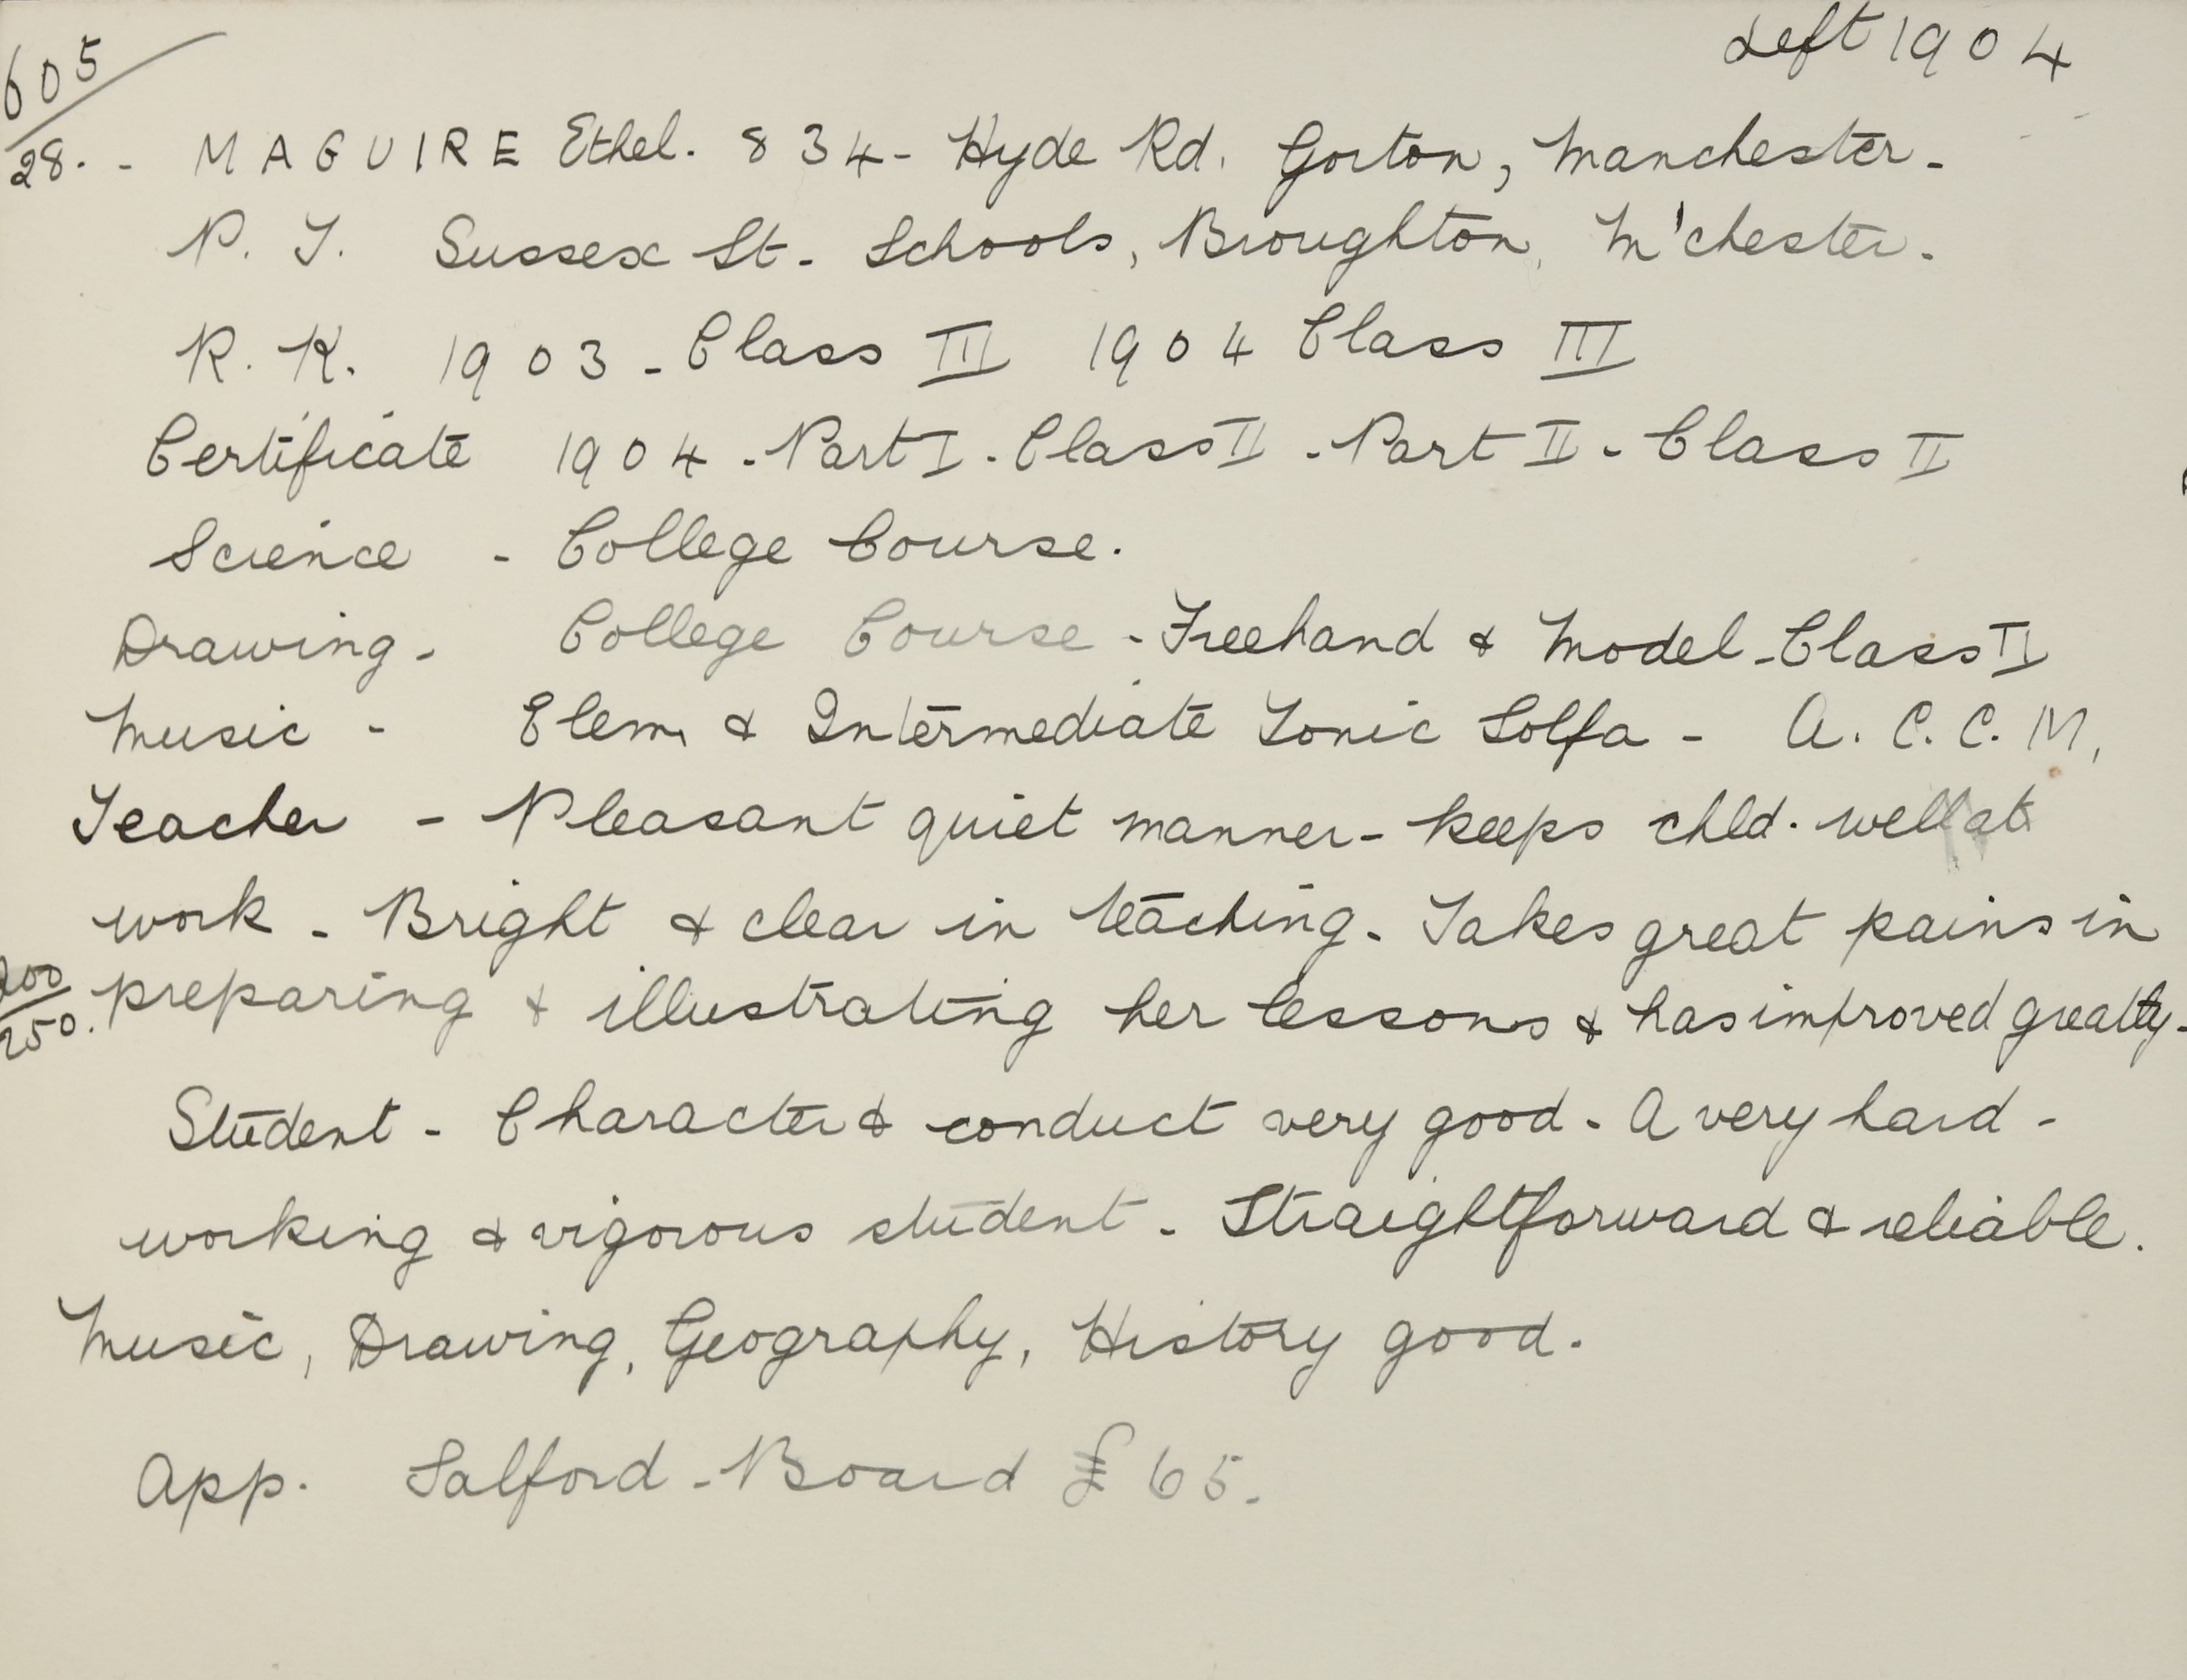 Left 1904
605
28. - MAGUIRE Ethel. 834 - Hyde Rd. Gorton, Manchester -
P. T. Sussex St. Schools, Broughton, M'chester.
R. K. 1903 - Class III 1904 Class III
Certificate 1904 - Part I - Class II - Part II - Class II
Science - College Course.
Drawing - College Course - Freehand & Model - Class II
Music - Elem. & Intermediate Tonic Solfa - A. C. C. M.
Teacher - Pleasant quiet manner - keeps chld. well at
work - Bright & clear in teaching. Takes great pains in
200
250. preparing & illustrating her lessons & has improved greatly -
Student - Character & conduct very good. A very hard -
working & vigorous student - Straightforward & reliable.
Music, Drawing, Geography, History good.
App. Salford - Board £65.